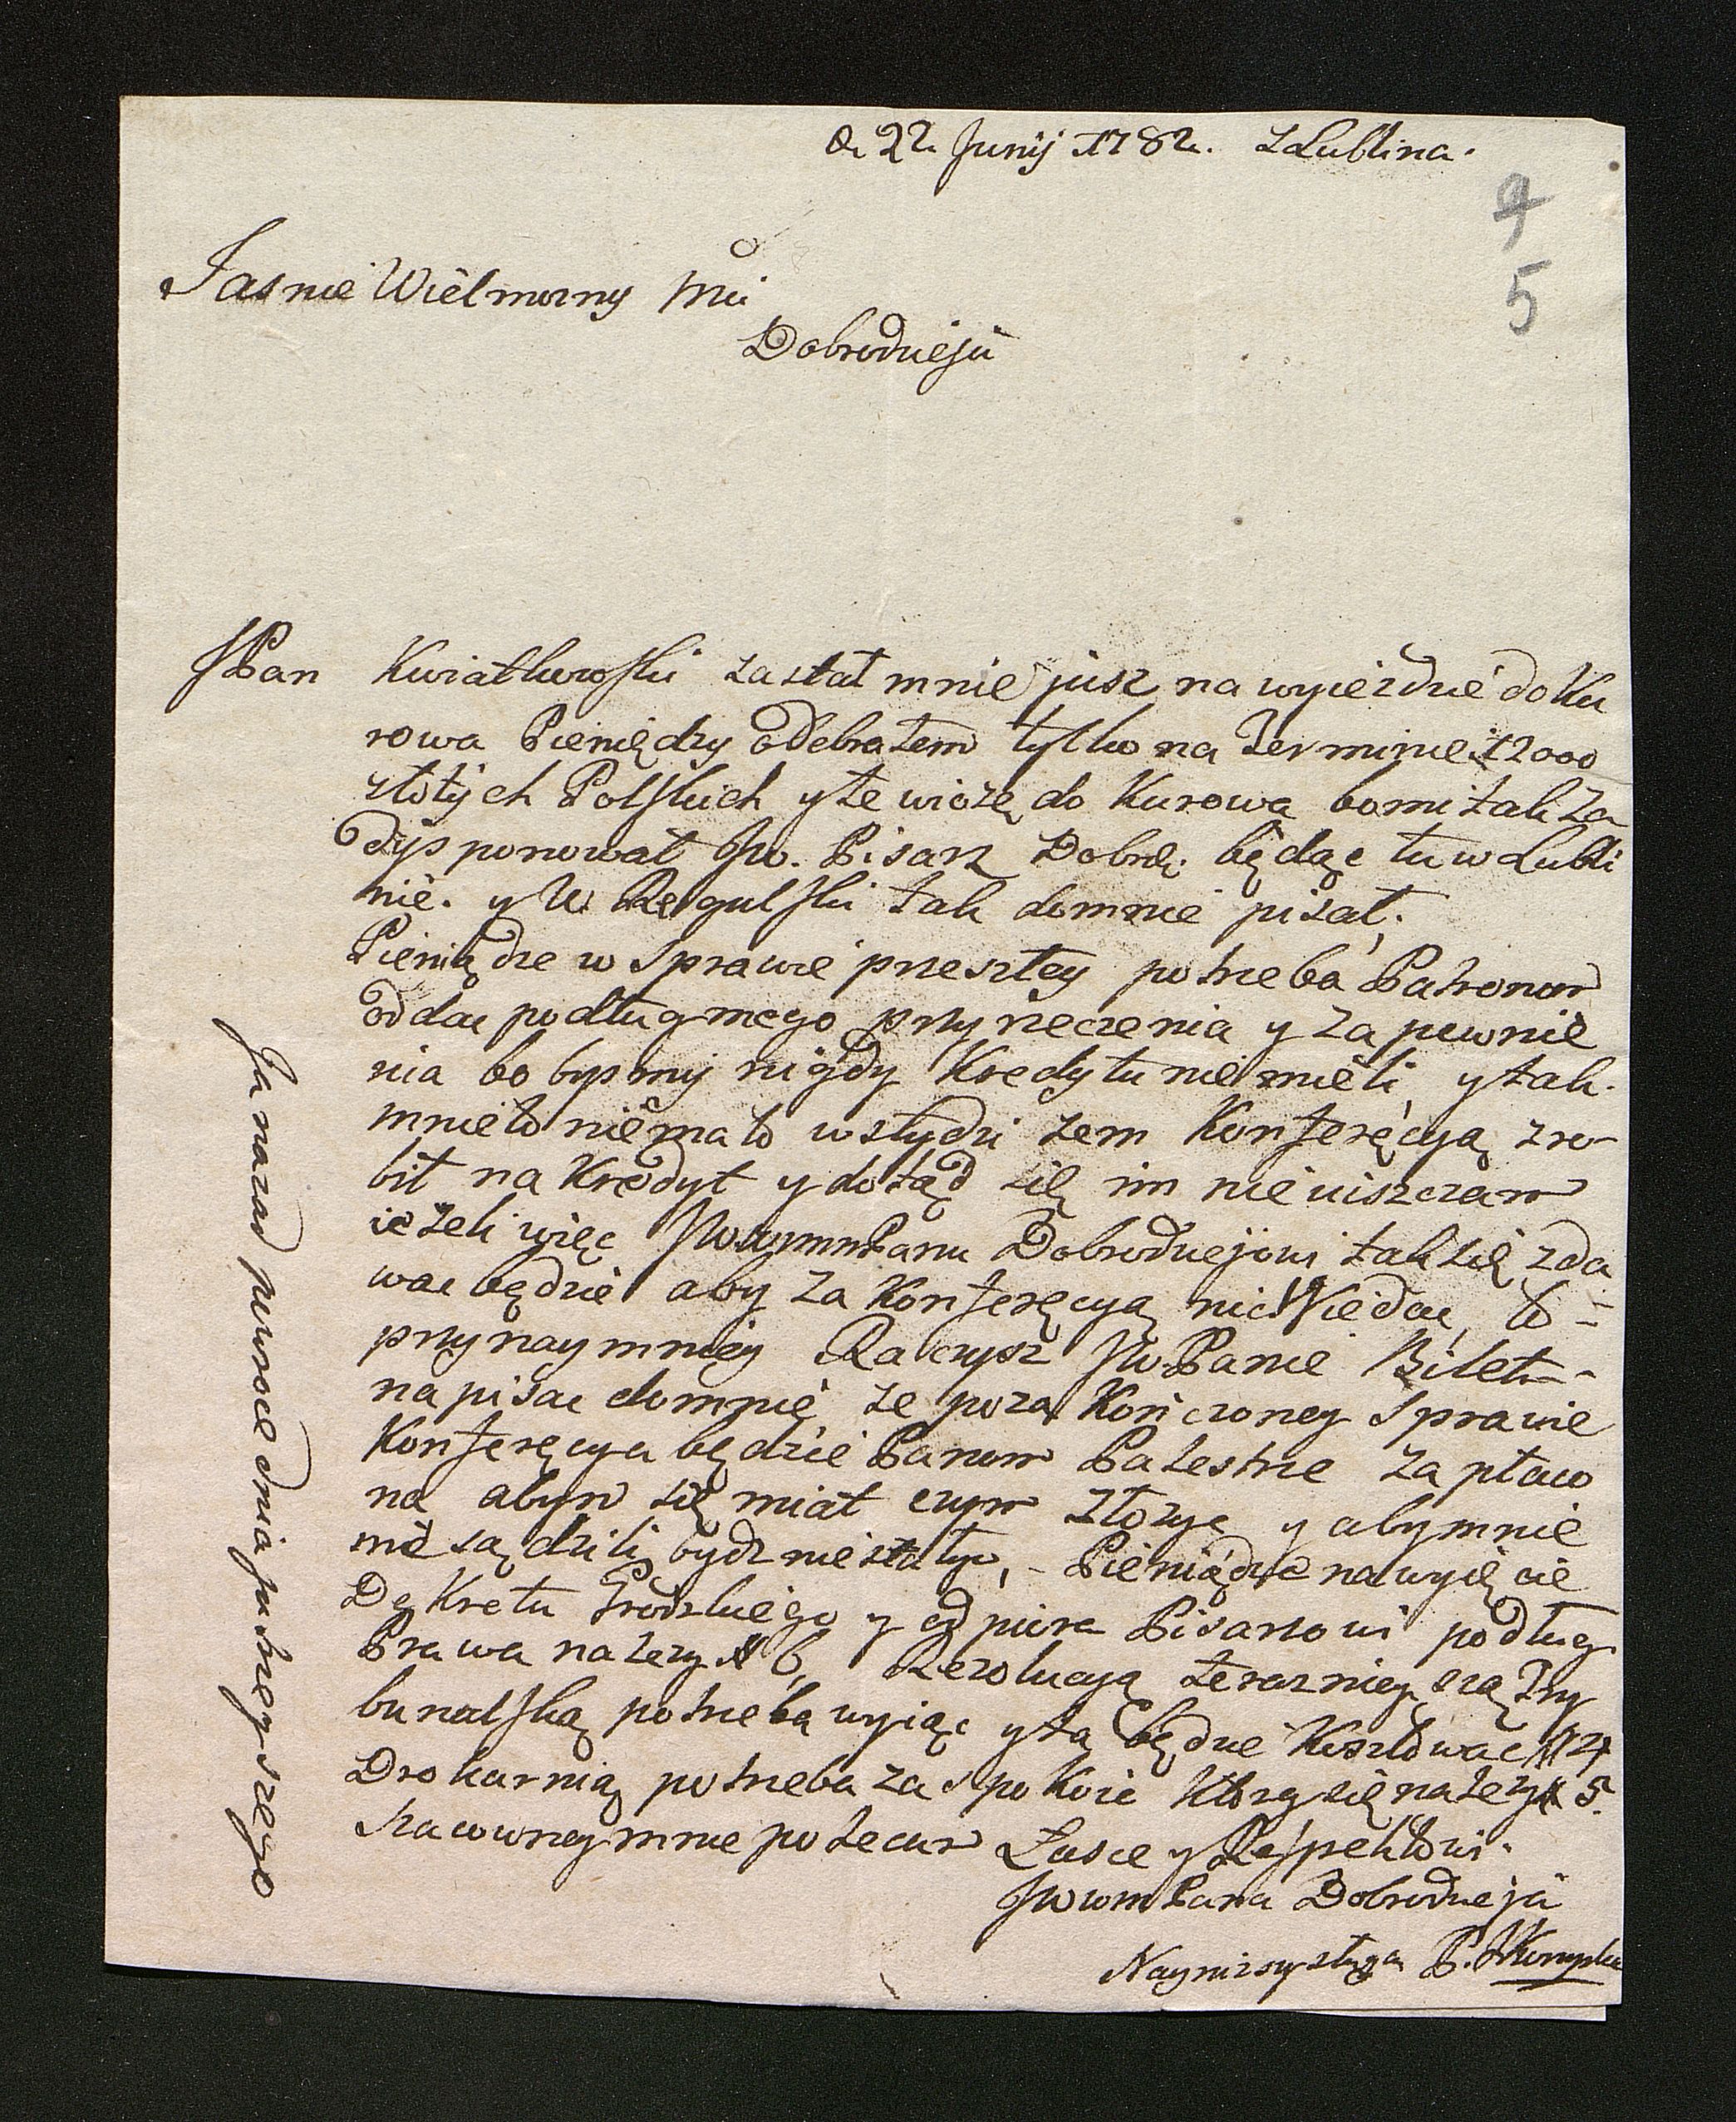 D. 22. Junij 1782. z Lublina.
4
5
Jasnie Wielmozny Mci
Dobrodzieju
JPan Kwiatkowski zastał mnie jusz na wyiezdzie do Ku
rowa Pieniędzy odebrałem tylko na Terminie 12000
złotych Polskich y te wiozę do Kurowa bo mi tak za
dysponował JW. Pisarz Dobrdz. będąc tu w Lubli
nie. y W. Regulski tak do mnie pisał,
Pieniądze w Sprawie przeszłey potrzeba Patronom
oddac podług mego przyrzeczenia y zapewnie
nia bo bysmy nigdy Kredytu nie mieli, y tak
mnie to nie mało wstydzi zem Konferęcyą zro-
bił na Kredyt y dotąd się im nie uiszczam
iezeli więc JWWmPanu Dobrodziejowi tak się zda
wac będzie aby za Konferęcyą nic Nie dac, to -
przynaymniey Raczysz JWPanie Bilet -
napisac do mnie, ze po zakończoney Sprawie
Konferęcya będzie Panom Palestrze zapłaco
na abym się miał czym złozyc y aby mnie
nie sądzili bydz niestałym, - Pieniądze na wyięcie
Dekretu Grodzkiego y od piura Pisarzowi podług
Prawa nalezy # 6, Rezolucyą teraznieyszą Try
bunalską potrzeba wyiąc y ta będzie Kosztowac # 4
Drokarnią potrzeba zaspokoic Ktorey się nalezy # 5.
Szacowney mnie polecam Łasce y Respektowi.
JWWmPana Dobrodzieja
Naynizszy sługa P.
Ja nazad powroce dnia jutrzeyszego